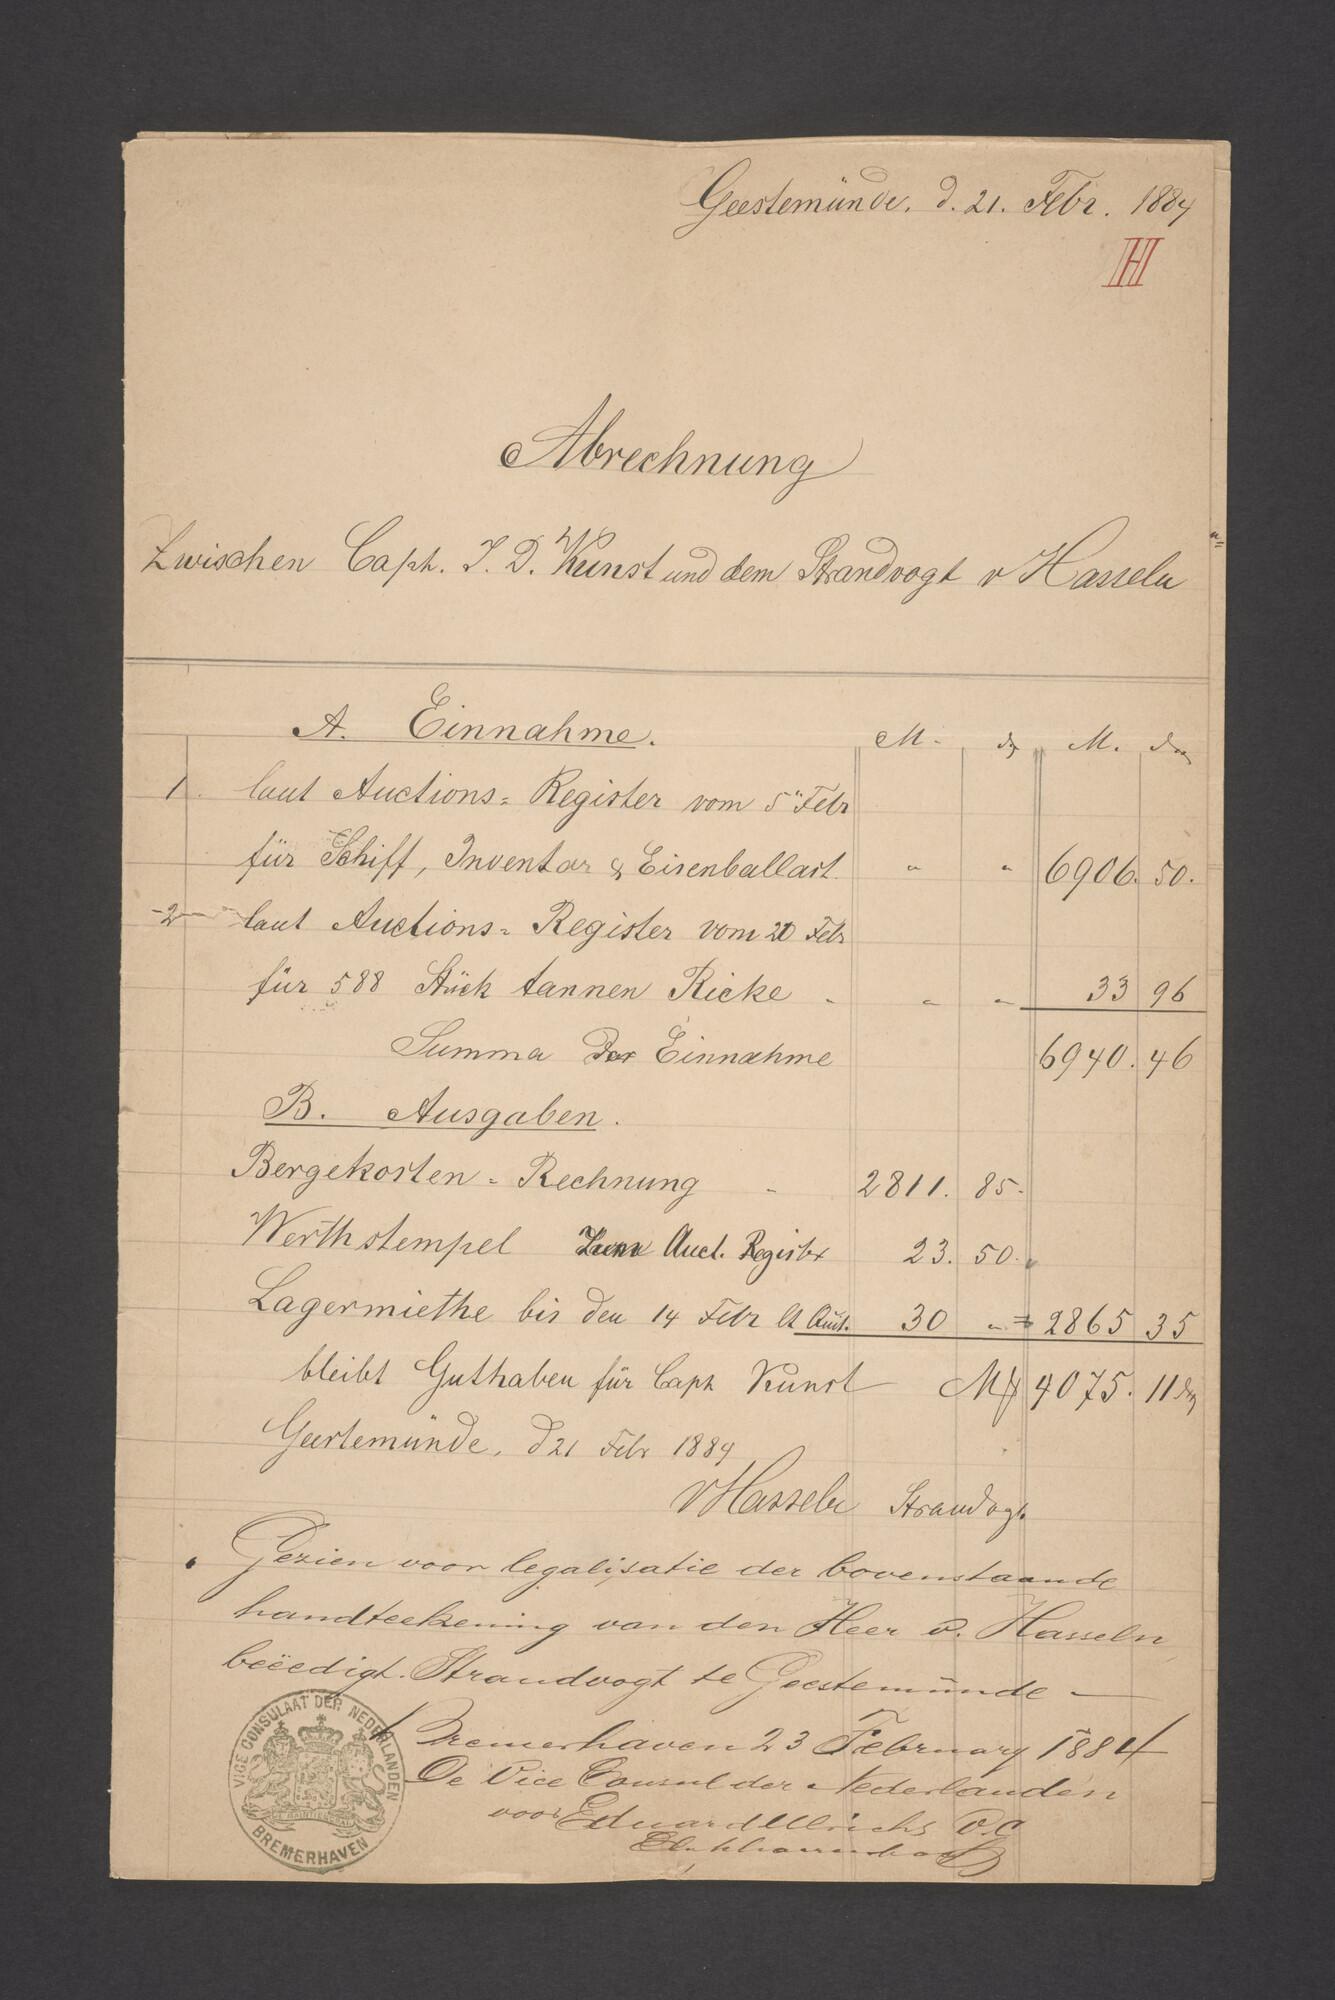 Geestemünde, d. 21. Febr. 1884
H
Abrechnung
Zwischen Capt. J. D. Kunst und dem Strandvogt v Hasseln
A. Einnahme. M. ₰ M. ₰
1. laut Auctions=Register vom 5" Febr
für Schiff, Inventar & Eisenballast " " 6906. 50.
2 laut Auctions=Register vom 20 Febr
für 588 Stück tannen Ricke " " 33 96
Summa der Einnahme 6940. 46
B. Ausgaben.
Bergekosten=Rechnung 2811. 85.
Werthstempel zum Auct. Register 23. 50.
Lagermiethe bis den 14 Febr lt Auct. 30 " = 2865 35
bleibt Guthaben für Capt Kunst M 4075. 11 ₰
Geestemünde, d 21 Febr 1884
vHasseln Strandvogt
Gezien voor legalisatie der bovenstaande
handteekening van den Heer v. Hasseln
beëedigt. Strandvogt te Geestemünde —
Bremerhaven 23 February 1884
De Vice Consul der Nederlanden
voor Eduard Ullrichs V.C
VICE CONSULAAT DER NEDERLANDEN
BREMERHAVEN